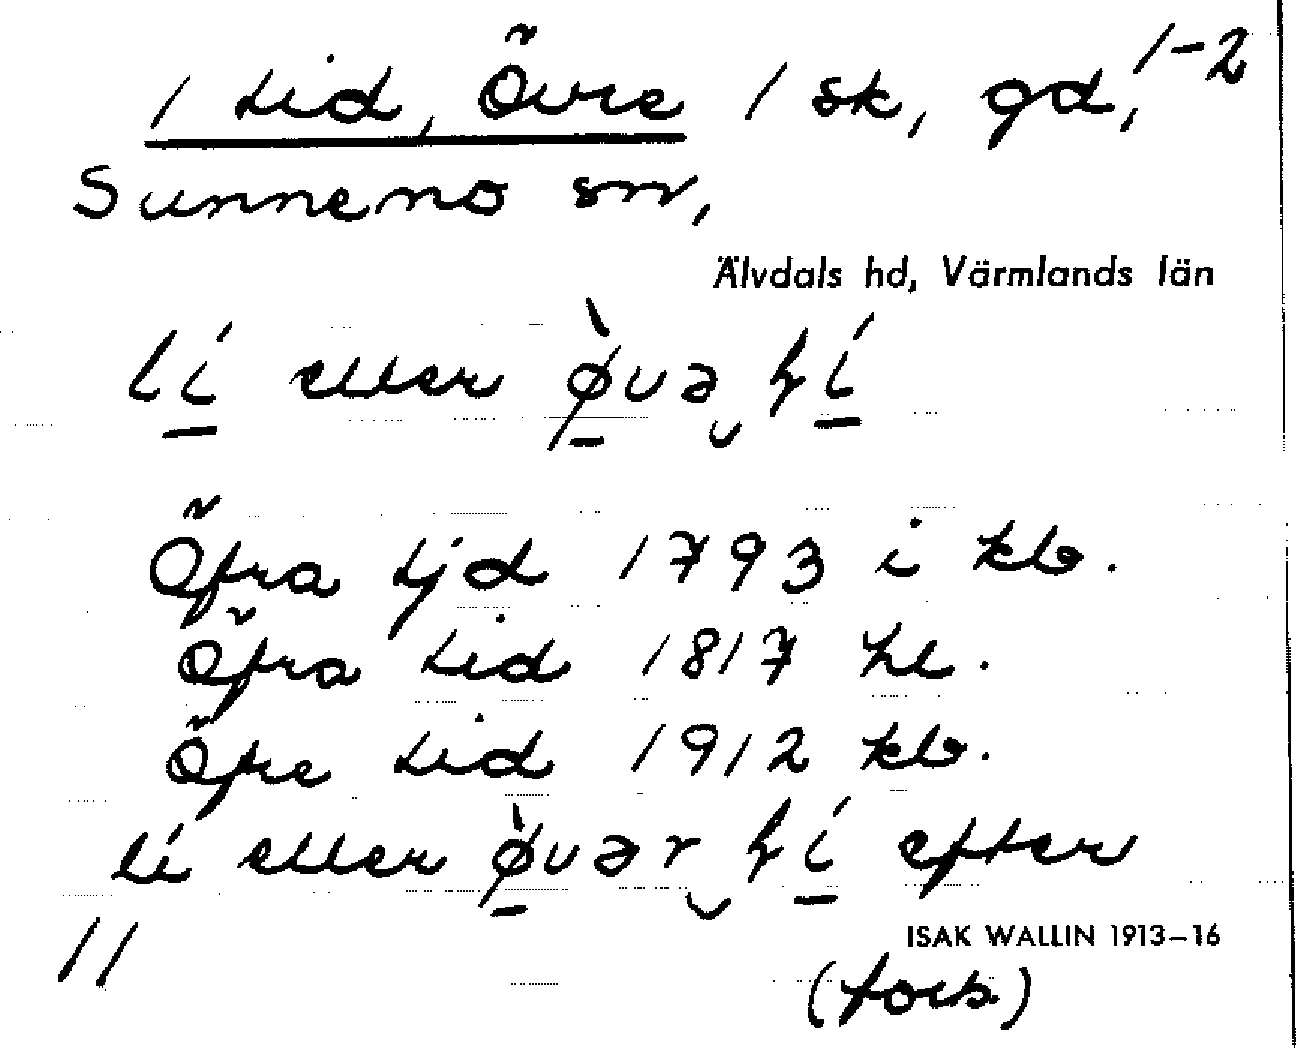 1 Lid, Övre 1 sk, gd, 1-2
Sunnemo sn,
Älvdals hd, Värmlands län
lí eller ø̀və lí
Öfra Ljd 1793 i kb.
Öfra Lid 1817 hl.
Öfre Lid 1912 kb.
lí eller ø̀vər lí efter
11
ISAK WALLIN 1913–16
(forts.)